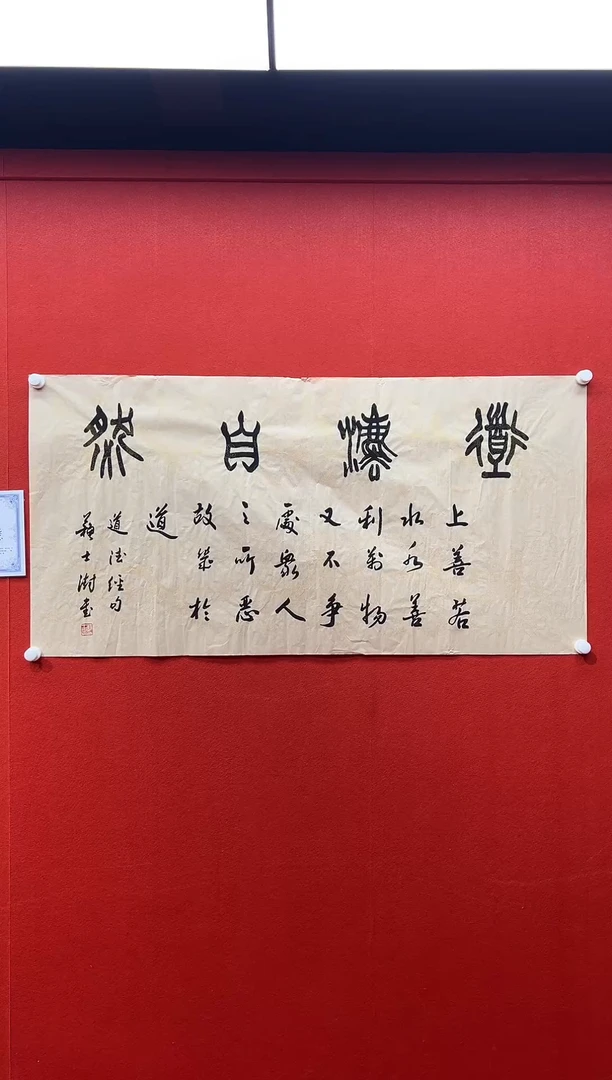 道灋自然
上善若
水水善
利萬物
又不爭
處衆人
之所惡
故幾於
道
道德經句
蘇士澍書